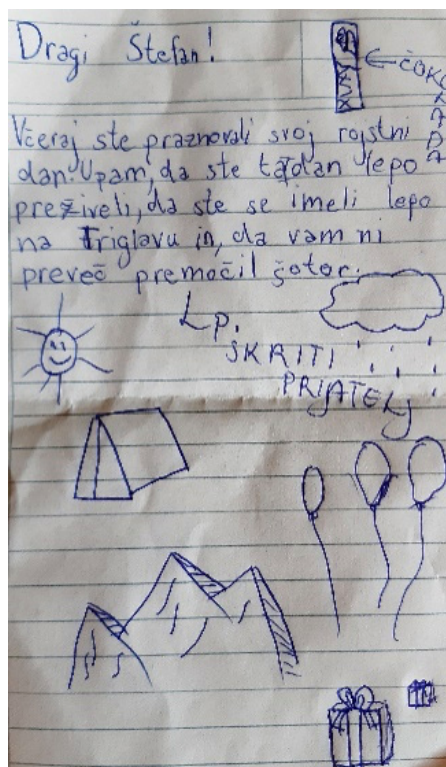 Dragi Štefan!
← ČOKOLADA
Včeraj ste praznovali svoj rojstni
dan. Upam, da ste ta dan lepo
preživeli, da ste se imeli lepo
na Triglavu in, da vam ni
preveč premočil šotor.
Lp.
ŠKRITI
PRIJATELJ